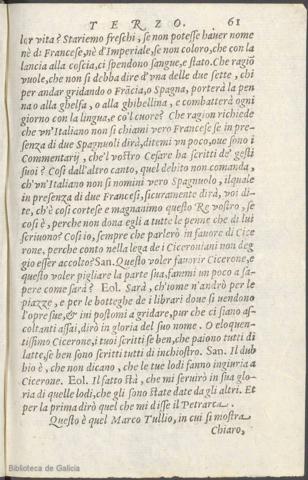 TERZO. 61
lor vita? Stariemo freschi, se non potesse hauer nome
nè di Francese, nè d'Imperiale, se non coloro, che con la
lancia alla coscia, ci spendono sangue, e stato. Che ragiõ
vuole, che non si debba dire d'vna delle due sette, chi
per andar gridando o Frãcia, o Spagna, porterà la pen
na o alla ghelfa, o alla ghibellina, e combatterà ogni
giorno con la lingua, e co'l cuore? Che ragion richiede
che vn'Italiano non si chiami vero Francese se in pre-
senza di due Spagnuoli dirà, ditemi vn poco, oue sono i
Commentarij, che'l vostro Cesare ha scritti de' gesti
suoi? Cosi dall'altro canto, quel debito non comanda,
ch'vn'Italian non si nomini vero Spagnuolo, ilquale
in presenza di due Francesi, sicuramente dirà, voi di-
te, ch'è cosi cortese e magnanimo questo Re vostro, se
cosi è, perche non dona egli a tutte le penne che di lui
scriuono? Cosi io, sempre che parlerò in fauore di Cice
rone, perche conto nella lega de i Ciceroniani non deg
gio esser accolto? San. Questo voler fauorir Cicerone, e
questo voler pigliare la parte sua, fammi un poco a sa-
pere come sarà? Eol. Sarà, ch'iome n'andrò per le
piazze, e per le botteghe de i librari doue si uendono
l'opre sue, & ini postomi a gridare, pur che ci siano as-
coltanti assai, dirò in gloria del suo nome. O eloquen-
tissimo Cicerone, i tuoi scritti se ben, che paiono tutti di
latte, se ben sono scritti tutti di inchiostro. San. Il dub
bio è, che non dicano, che le tue lodi fanno ingiuria a
Cicerone. Eol. Il fatto stà, che mi seruirò in sua glo-
ria di quelle lodi, che gli sono state date da gli altri. Et
per la prima dirò quel che mi disse il Petrarca.
Questo è quel Marco Tullio, in cui si mostra
Chiaro,
Biblioteca de Galicia